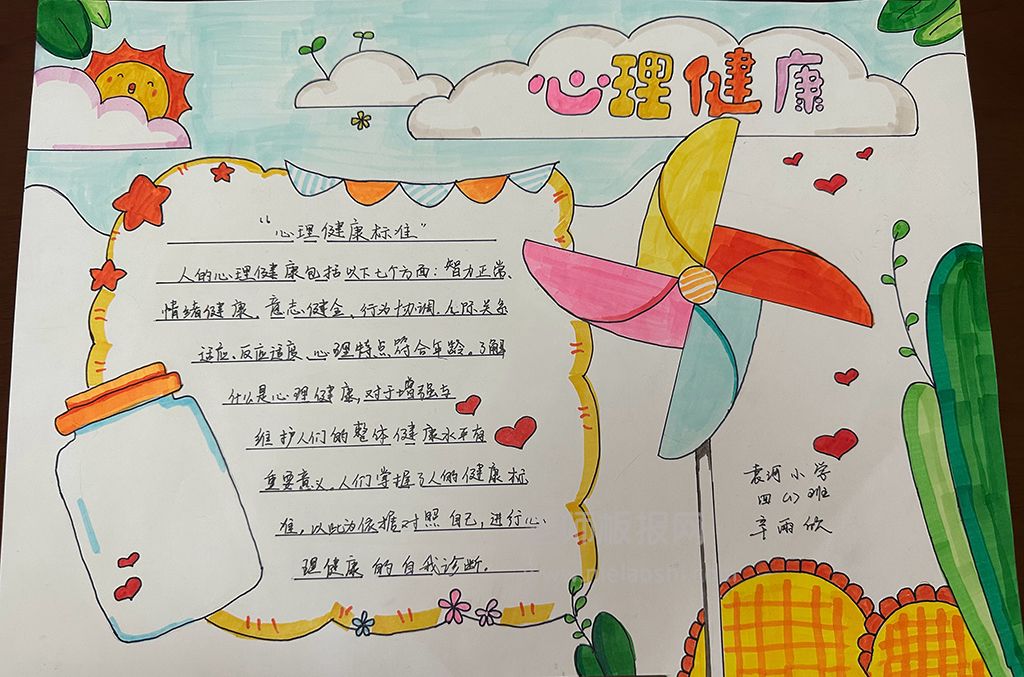 心理健康
“心理健康标准”
人的心理健康包括以下七个方面：智力正常、
情绪健康、意志健全、行为协调、人际关系
适应、反应适度、心理特点符合年龄。了解
什么是心理健康，对于增强与
维护人们的整体健康水平有
重要意义。人们掌握了人的健康标
准，以此为依据对照自己，进行心
理健康的自我诊断。
袁河小学
四(1)班
辛雨欣
板报网